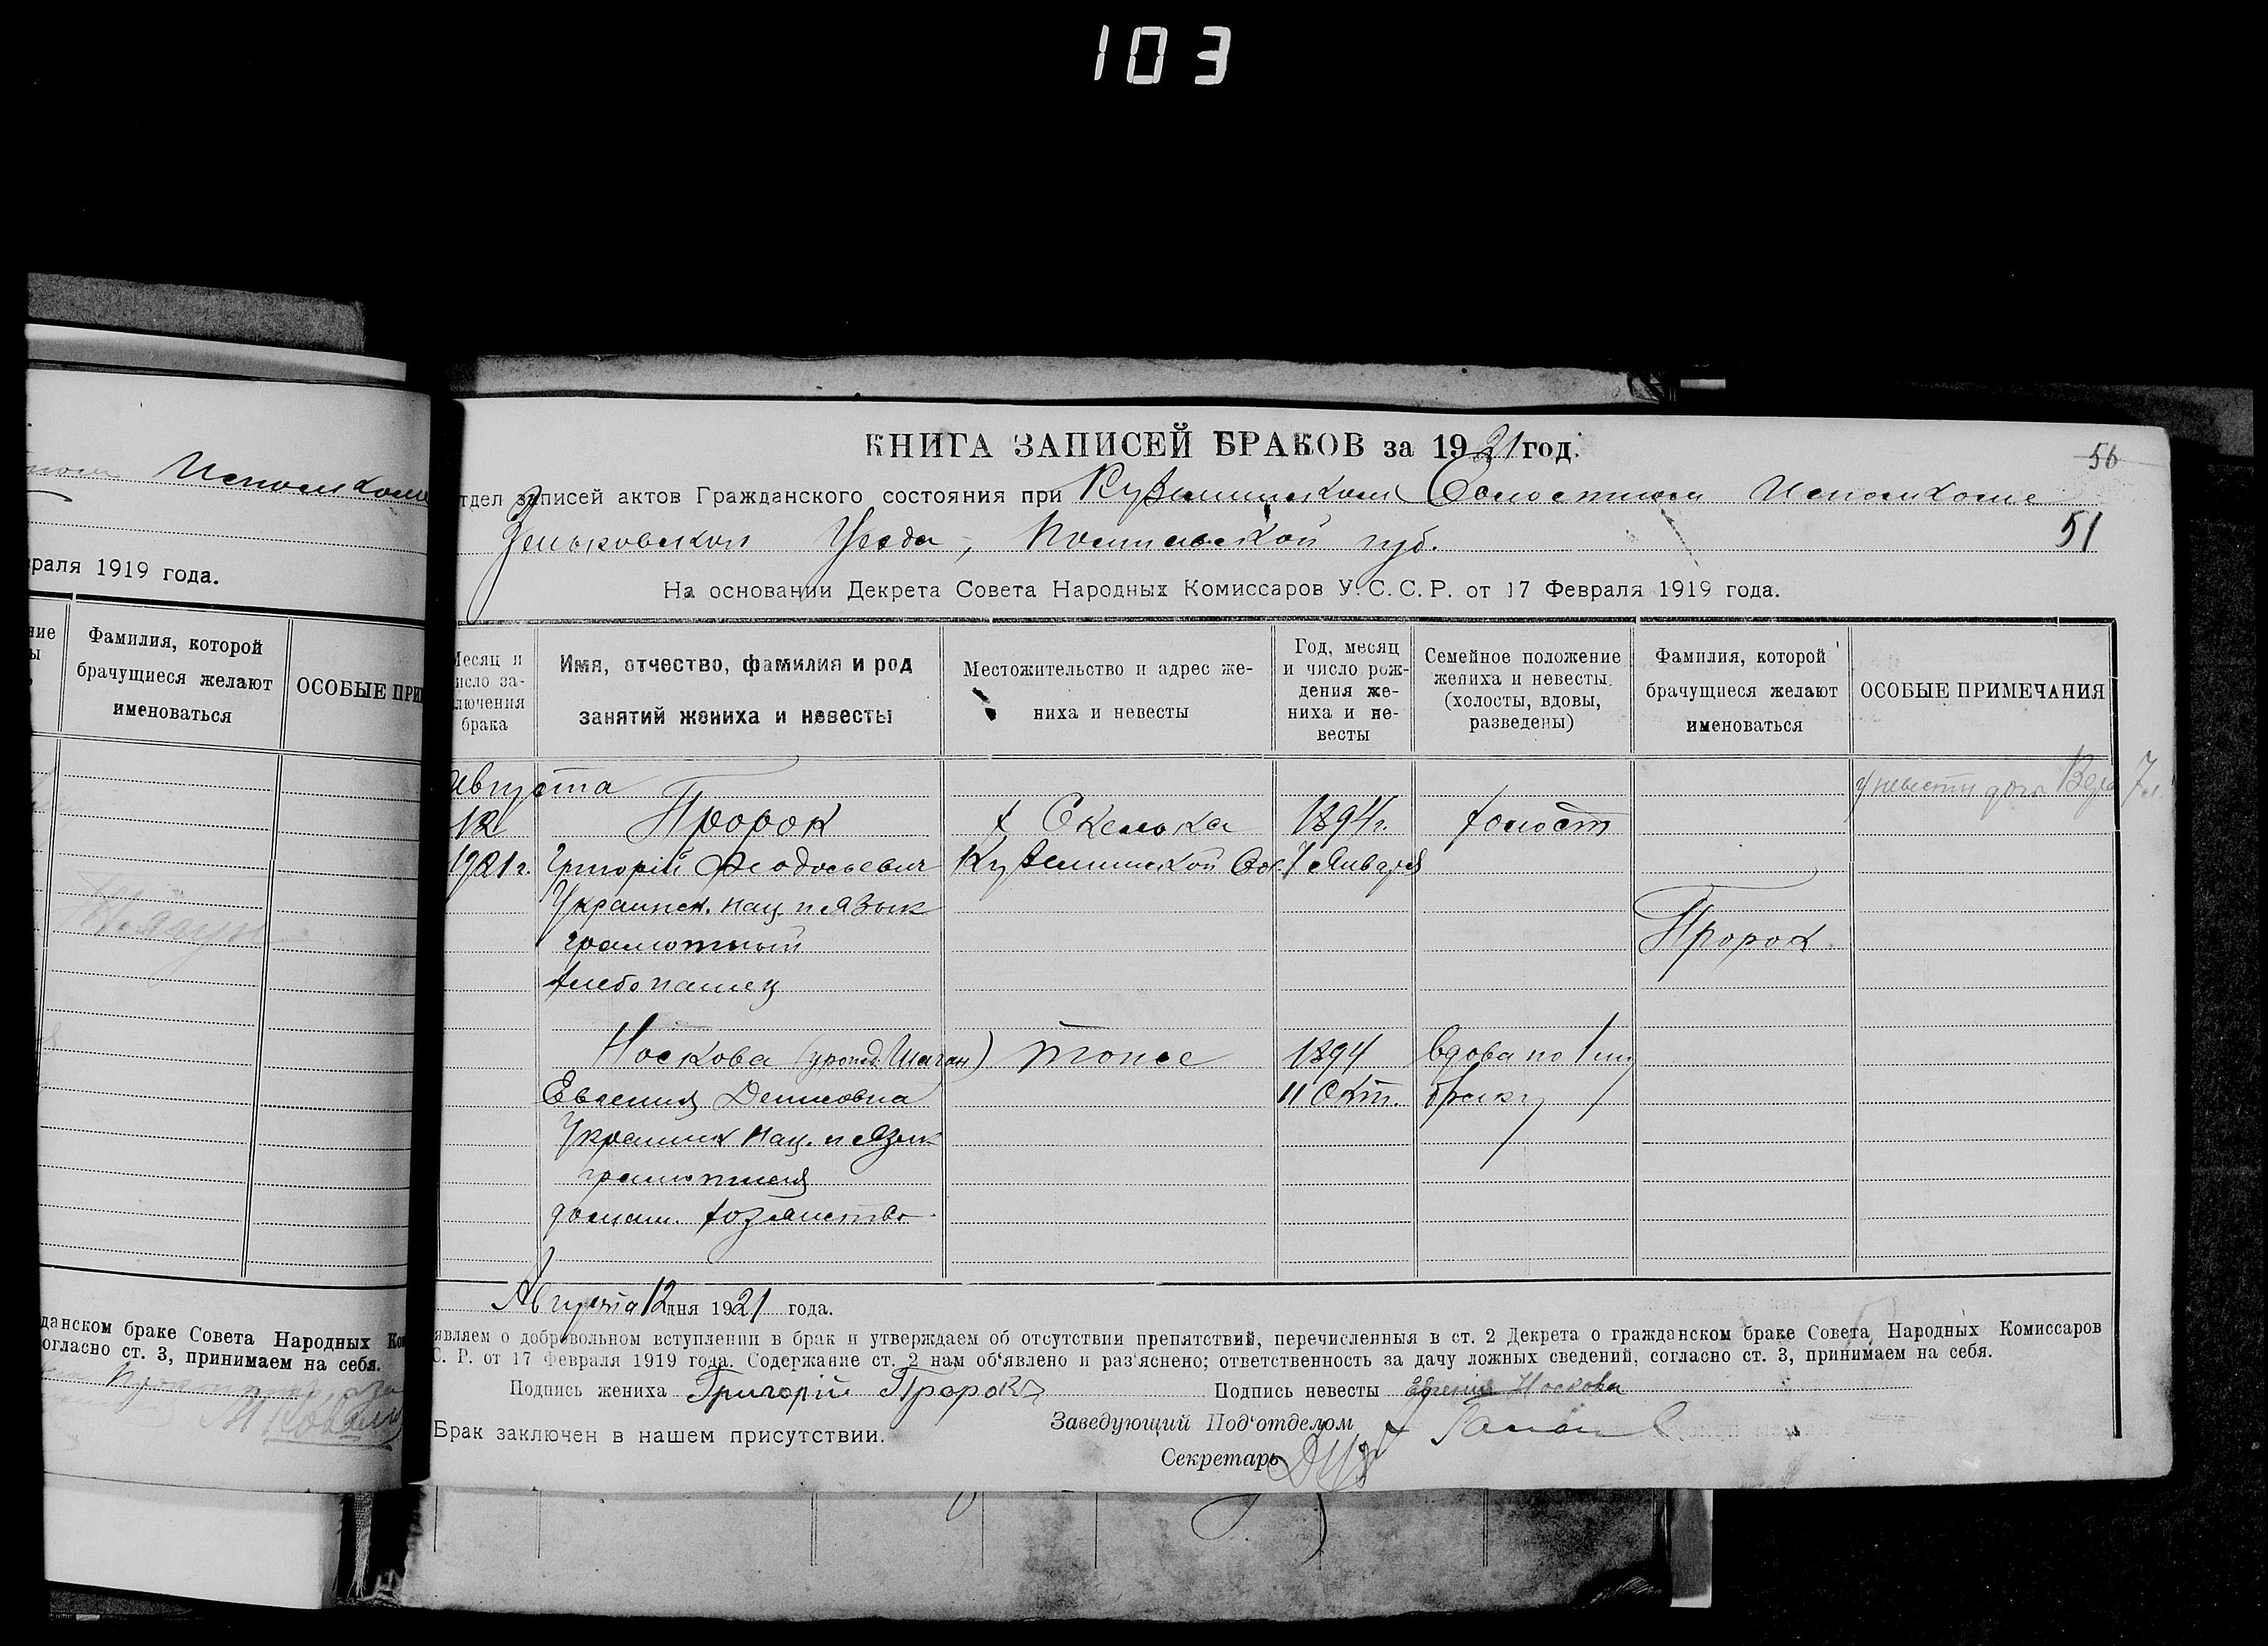 103
Исполкоме
враля 1919 года.
Фамилия, которой
брачущиеся желают
именоваться
ОСОБЫЕ ПРИ
данском браке Совета Народных Ко
огласно ст. 3, принимаем на себя.
КНИГА ЗАПИСЕЙ БРАКОВ за 1921 год.
56
тдел записей актов Гражданского состояния при Куземинском Волостном Исполкоме
Зеньковского Уезда, Полтавской губ.
51
На основании Декрета Совета Народных Комиссаров У.С.С.Р. от 17 Февраля 1919 года.
Месяц и
число за-
ключения
брака
Имя, отчество, фамилия и род
занятий жениха и невесты
Местожительство и адрес же-
ниха и невесты
Год, месяц
и число рож-
дения же-
ниха и не-
весты
Семейное положение
жениха и невесты
(холосты, вдовы,
разведены)
Фамилия, которой
брачущиеся желают
именоваться
ОСОБЫЕ ПРИМЕЧАНИЯ
Августа
у невесты дочь Вера 7 л.
12 Пророк х Скелька 1894 г. холост
1921 г. Григорій Феодосьевич Куземинской Вол. 7 Января
Украинск. нац. и язык
грамотный Пророк
хлебопашец
Носкова (урожд. Шаган) тоже 1894 вдова по 1 му
Евгения Денисовна 11 Окт. браку
Украинск нац. и язык
грамотная
домаш. хозяиство
Августа 12 дня 1921 года.
являем о добровольном вступлении в брак и утверждаем об отсутствии препятствий, перечисленныя в ст. 2 Декрета о гражданском браке Совета Народных Комиссаров
С. Р. от 17 Февраля 1919 года. Содержание ст. 2 нам об‘явлено и раз‘яснено; ответственность за дачу ложных сведений, согласно ст. 3, принимаем на себя.
Подпись жениха Григорій Пророкъ Подпись невесты Евгения Носкова
Заведующий Под‘отделом
Брак заключен в нашем присутствии.
Секретарь